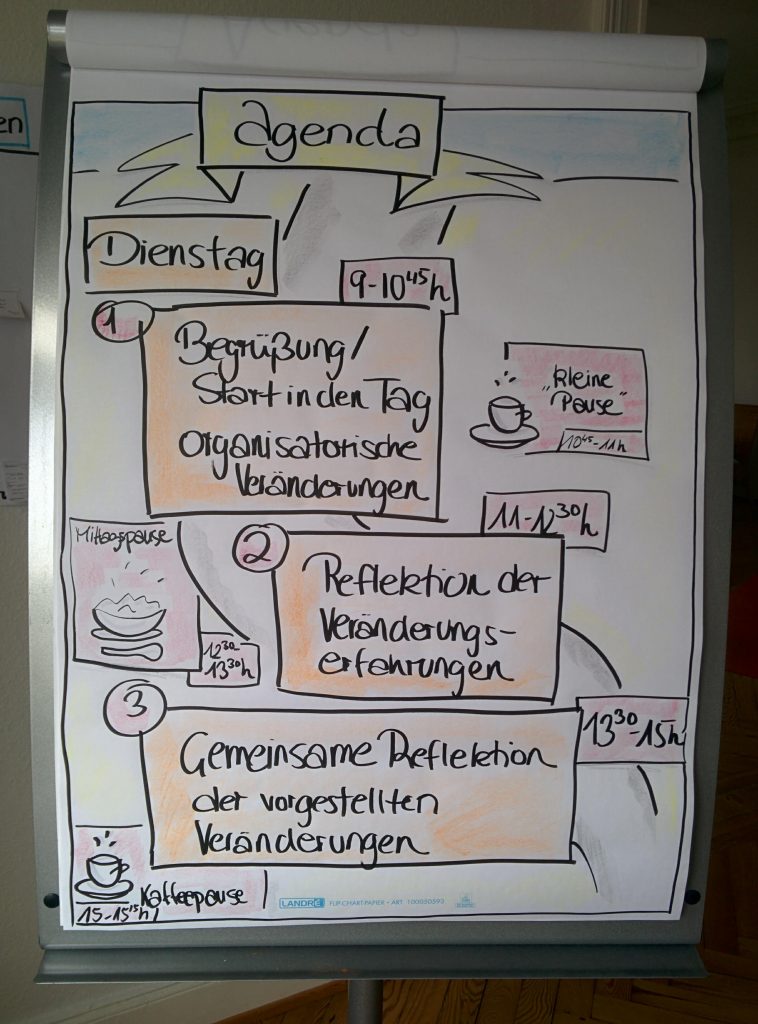 en
agenda
Dienstag
9-10⁴⁵h
1
Begrüßung/
Start in den Tag
organisatorische
Veränderungen
„kleine
Pause"
10⁴⁵-11h
11-12³⁰h
2
Reflektion der
Veränderungs-
erfahrungen
Mittagspause
12³⁰-
13³⁰h
3
13³⁰-15h
Gemeinsame Reflektion
der vorgestellten
Veränderungen
Kaffeepause
15-15¹⁵h
LANDRÉ FLIP-CHART-PAPIER • ART. 100050593